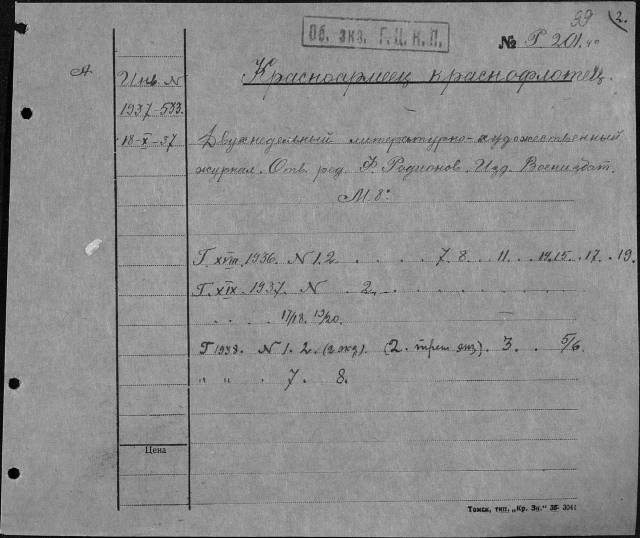 99 2.
Об. экз. Г.Ц.К.П.
№ Р 201
А
Инв. N
1937-533.
18-X-37
Красноармеец краснофлотец.
Двухнедельный литературно-художественный
журнал. Отв. ред. Ф. Родионов. Изд. Воениздат.
М 8°
Г. XVIII. 1936. N 1. 2 . . . . 7. 8. . 11. . 14. 15. . 17. . 19.
Г. XIX. 1937. N . 2. . . . . . .
. . . . 17/18. 19/20.
Г 1938. N 1. 2. (2 экз). (2. трет экз). 3. . 5/6.
" " . 7. 8.
Цена
Томск, тип. „Кр. Зн." 35- 3041